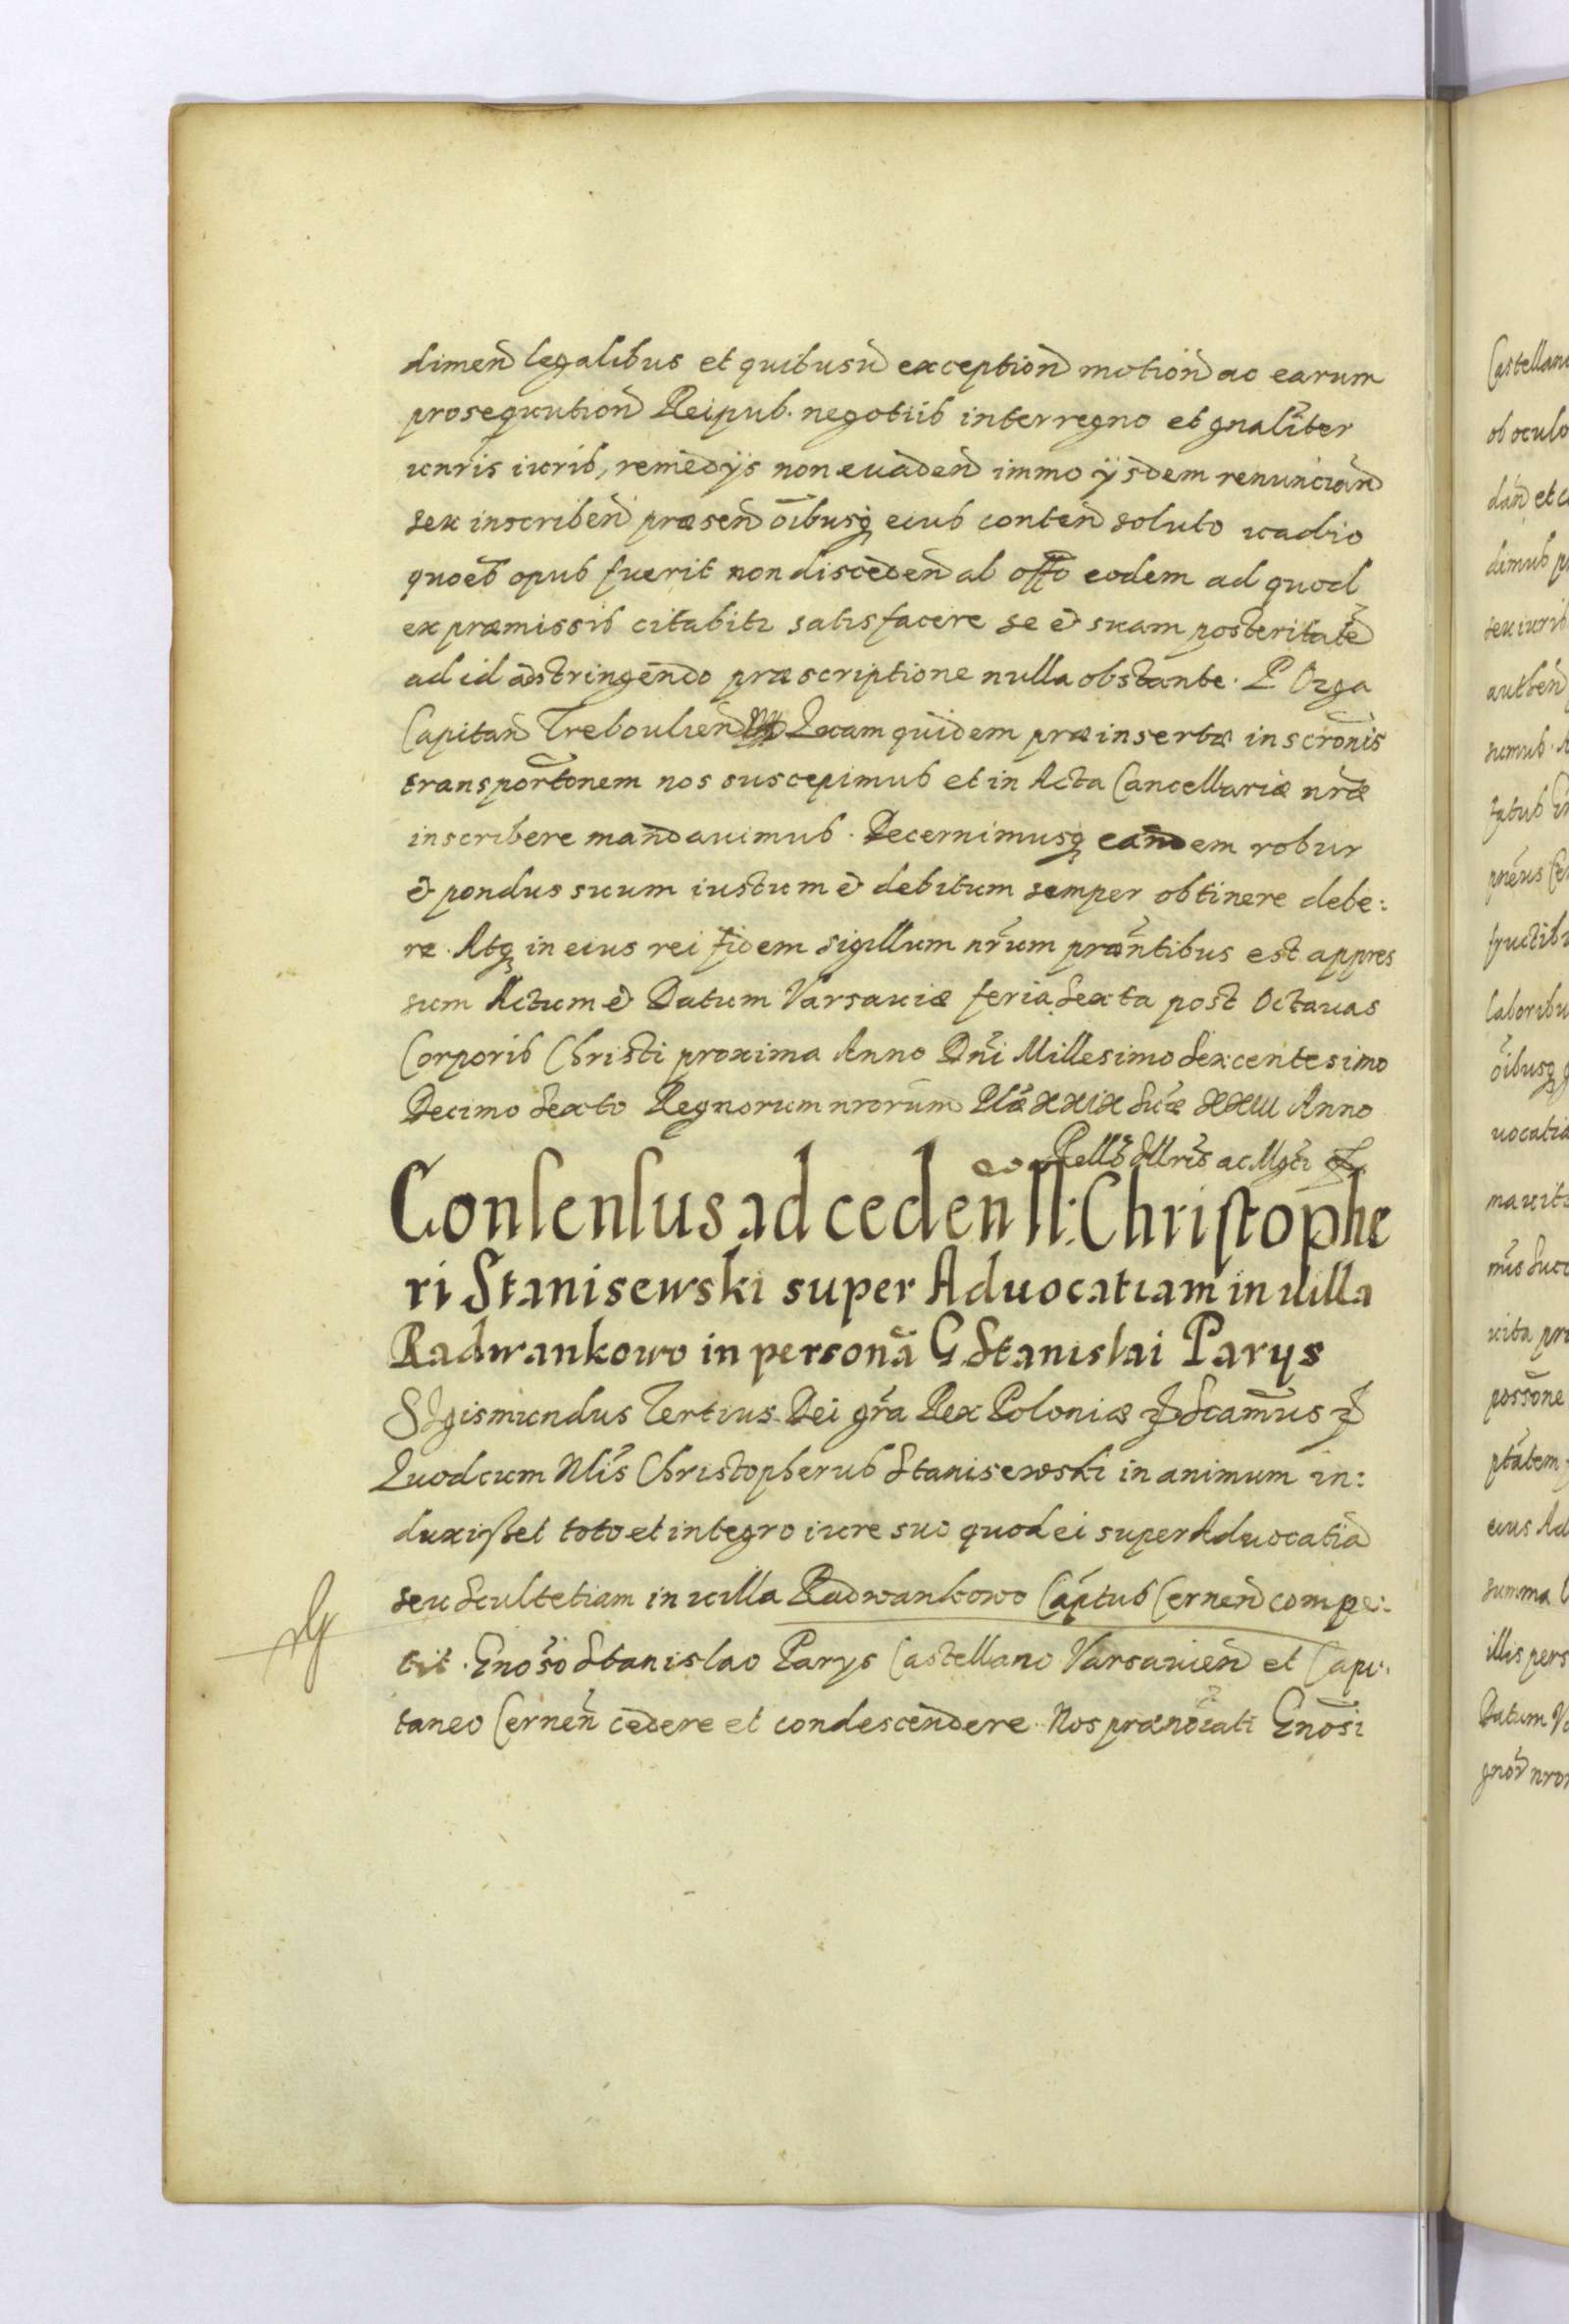 dimen legalibus et quibusú exception motion ac earum
prosequution Reipub. negotiis interregno et gnaliter
unris iuris, remedÿs non evaden immo ÿsdem renuncian
seu inscriben præsen oibusq eius conten soluto vadio
quoēs opus fuerit non disceden ab offo eodem ad quod
ex præmissis citabitr satisfacere se et suam posteritatē
ad id adstringendo præscriptione nulla obstante. P Ozga
Capitan Treboulien Quam quidem præinsertæ inscronis
transportonem nos suscepimus et in Acta Cancellariæ nræ
inscribere mandavimus. Decernimusq eandem robur
et pondus suum iustum et debitum semper obtinere debe:
re. Atq in eius rei fidem sigillum nrum præntibus est appres
sum Actum et Datum Varsaviæ feria sexta post Octavas
Corporis Christi proxima Anno Dni Millesimo Sexcentesimo
Decimo Sexto Regnorum nrorum Plæ XXIX Suæ XXIII Anno
eo Rellõ Illris ac Mgci
Consensus ad ceden N: Christophe
ri Stanisewski super Aduocatiam in uilla
Radwankowo in personã G. Stanislai Parys
Sigismundus Tertius Dei gra Rex Poloniæ Scamus
Quod cum Nlis Christopherus Stanisewski in animum in:
duxisset toto et integro iure suo quod ei super Aduocatiã
seu Scultetiam in uilla Radwankowo Captus Cernen compe:
tit. Gnoso Stanislao Parys Castellano Varsauien et Capi:
taneo Cernen cedere et condescendere. Nos prænoiati Gnosi
Castellan
ob oculo
dan et c
dimus p
seu iuris
authen
sumus. A
tatus
pnēus Ce
fructib
laboribu
oibusq g
uocatia
mavit
mūs Succ
vita pr
possone
ptatem
eius Ad
summa
illis pers
Datum V
gnor nror